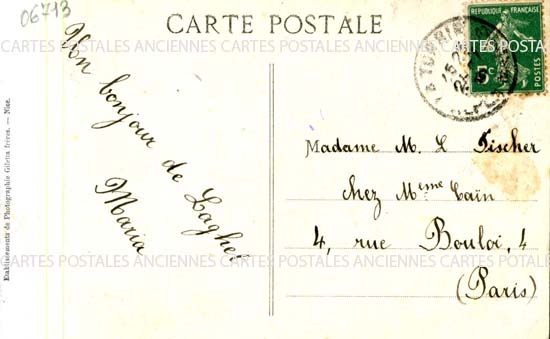 06713
CARTE POSTALE
RÉPUBLIQUE FRANÇAISE
5c
POSTES
LA TURBIE
CARTES POSTALES ANCIENNES CARTES POSTALES ANCIENNES CARTES POTALE
Un bonjour de Laghet
Maria
Madame M. L. Fischer
chez Mme Caïn
4, rue Bouloi, 4
(Paris)
CARTES POSTALES ANCIENNES CARTES POSTALES ANCIENNES CARTES POTALE
Etablissements de Photographie Giletta frères. — Nice.